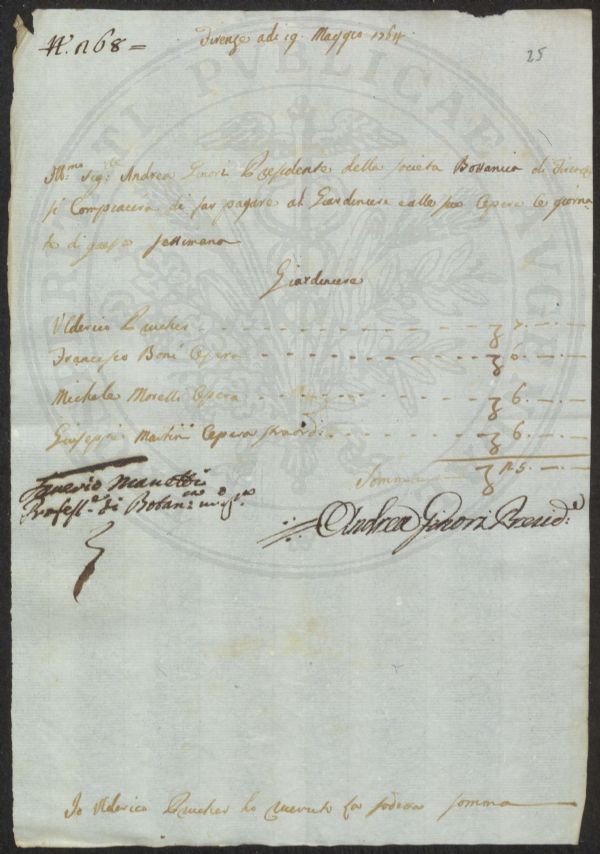 N.° 168 =
Firenze adi 19. Maggio 1764
25
Ill:mo Sig:re Andrea Ginori Presidente della Società Bottanica di Firenze
si Compiacerà di far pagare al Giardiniere e alle sue Opere le giorna
te di questa settimana
Giardiniere
Ulderico Prucher 7
Francesco Boni Opera 6
Michele Morelli Opera 6
Giuseppe Martini Opera straord: 6
Somma 25
Saverio Manetti
Profess:re di Botan:ca
Andrea Ginori Presid:e
Io Ulderico Prucher ho ricevuto la sodetta somma
PUBLICAE